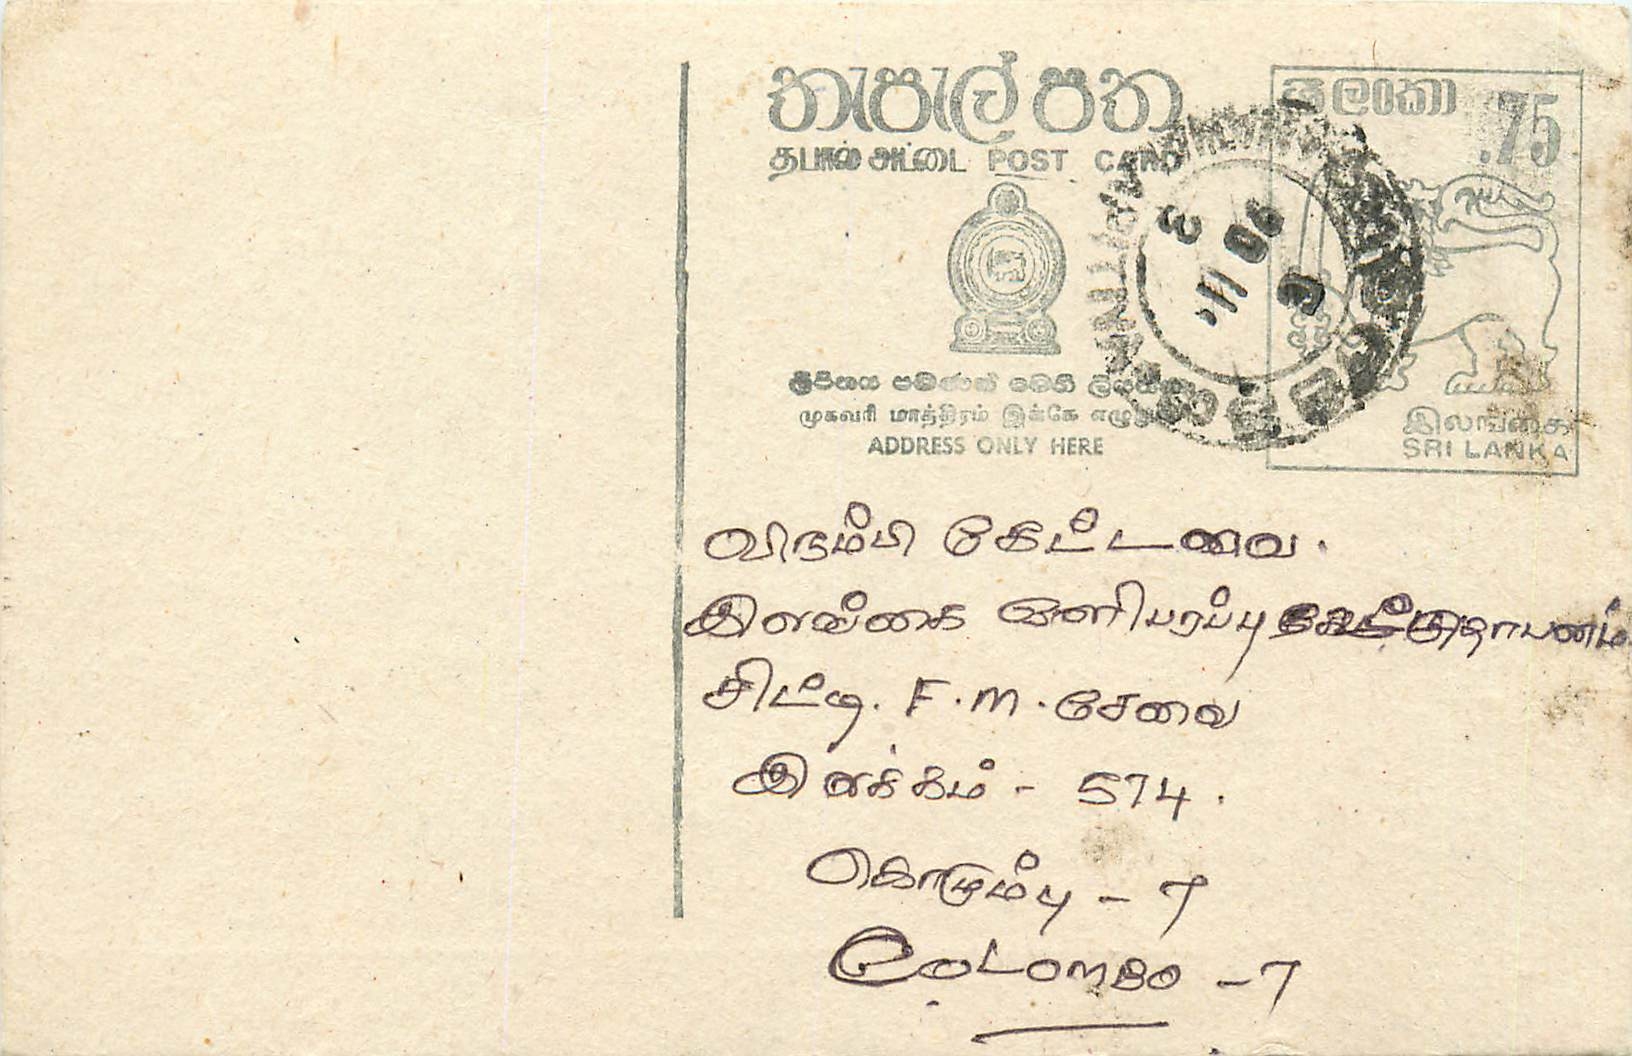 තැපැල් පත
தபால் அட்டை POST CARD
ශ්‍රී ලංකා .75
ලිපිනය පමණක් මෙහි ලියන්න
முகவரி மாத்திரம் இங்கே எழுதுக
ADDRESS ONLY HERE
இலங்கை
SRI LANKA
90 11
3
விரும்பி கேட்டவை.
இலங்கை ஒலிபரப்பு கூட்டுதாபனம்
சிட்டி. F.M. சேவை
இலக்கம் - 574.
கொழும்பு - 7
COLOMBO - 7